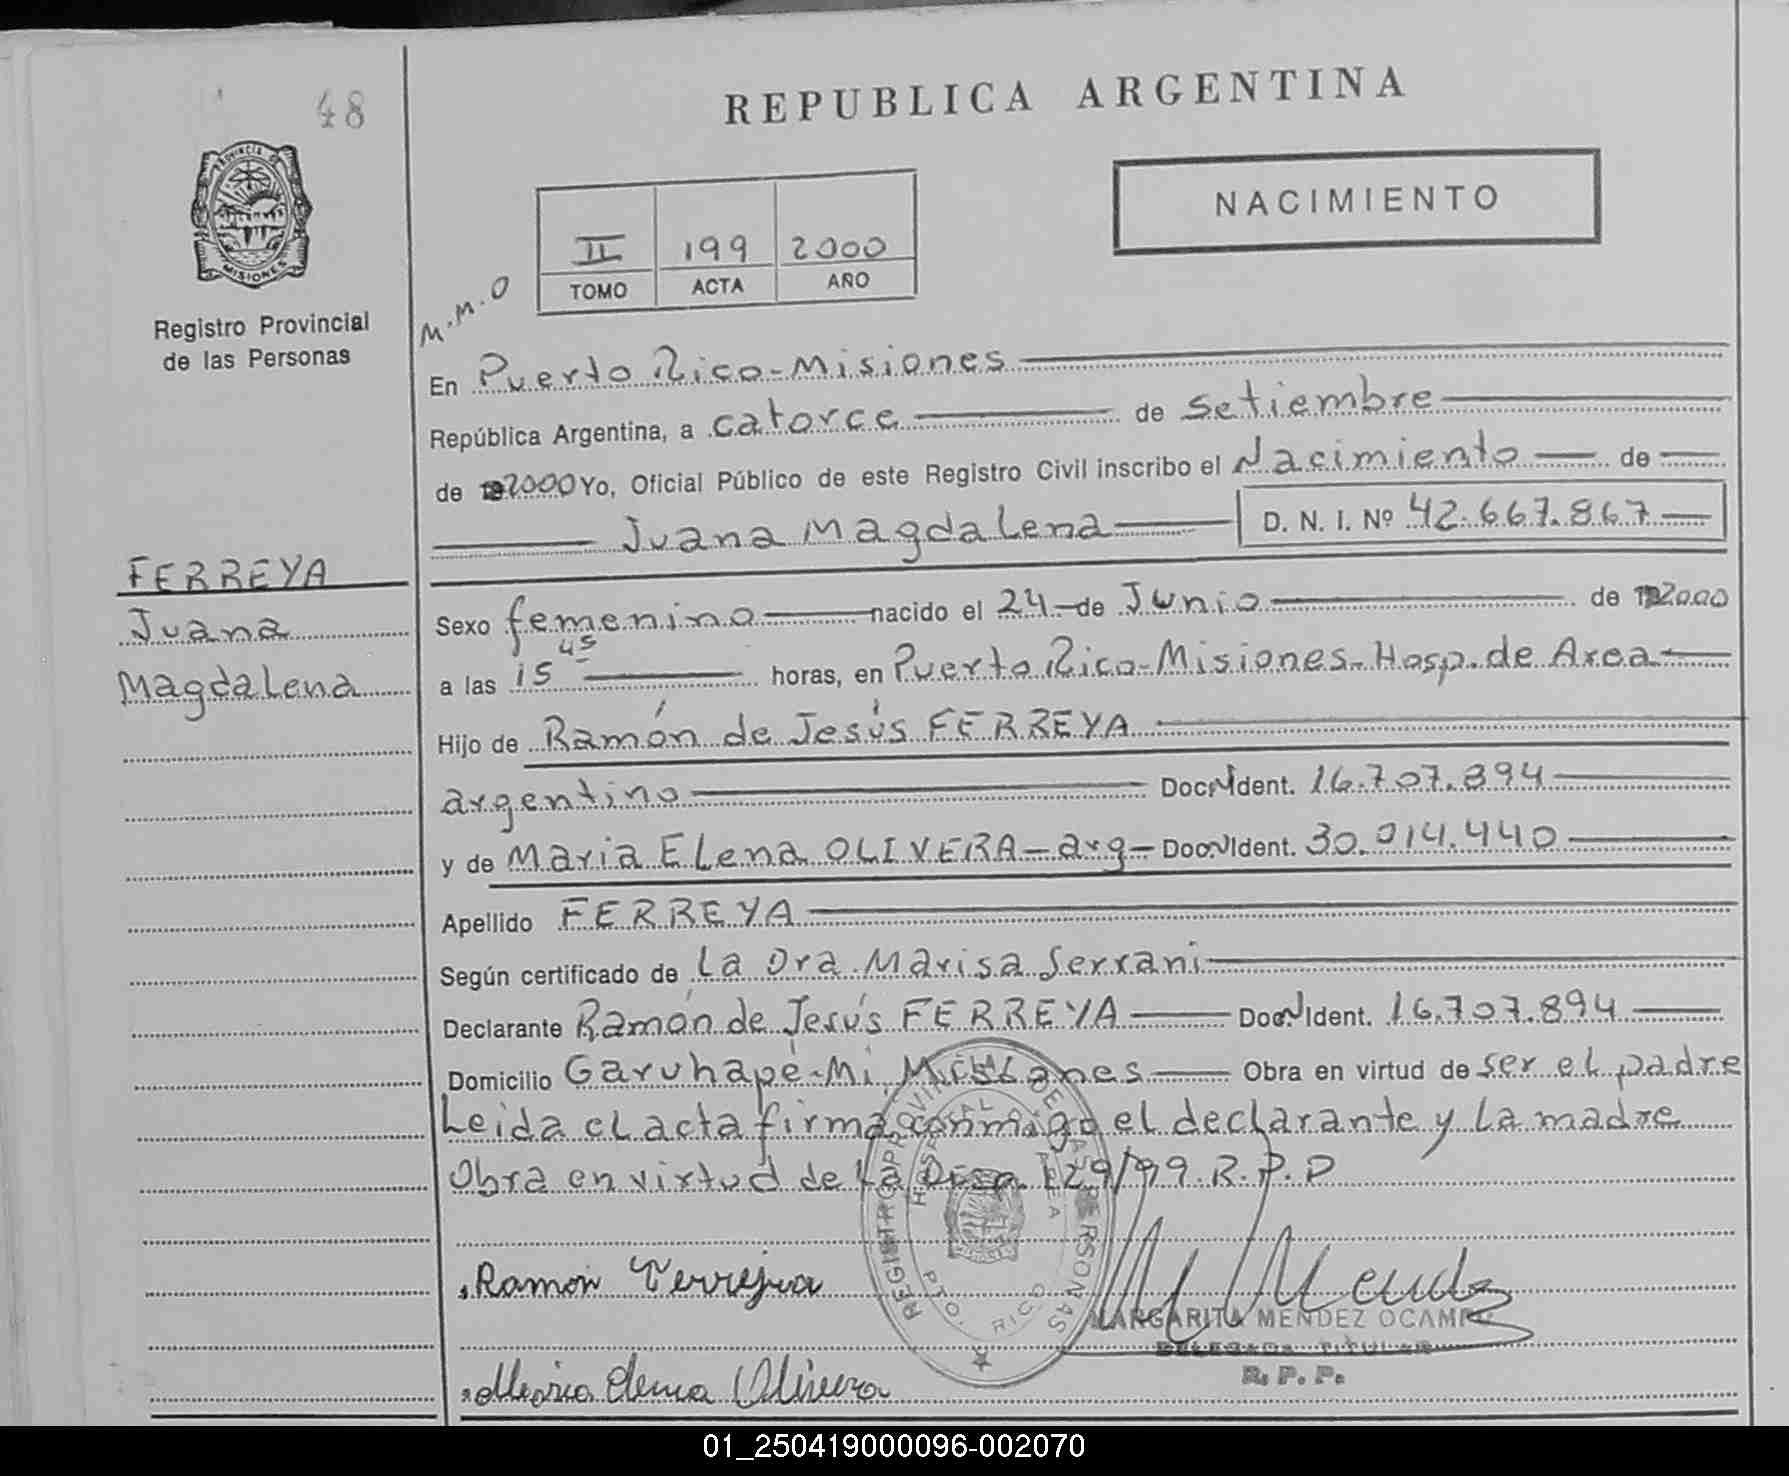 48
REPUBLICA ARGENTINA
NACIMIENTO
PROVINCIA DE
MISIONES
Registro Provincial
de las Personas
II 199 2000
TOMO ACTA AÑO
M.M.O
En Puerto Rico-Misiones
República Argentina, a catorce de setiembre
de 2000 Yo, Oficial Público de este Registro Civil inscribo el Nacimiento de
Juana Magdalena D. N. I. Nº 42.667.867
FERREYA
Juana
Magdalena
Sexo femenino nacido el 24 de Junio de 2000
a las 15 45 horas, en Puerto Rico-Misiones-Hosp. de Area
Hijo de Ramón de Jesús FERREYA
argentino Doc. N Ident. 16.707.894
y de Maria Elena OLIVERA-arg- Doc. N Ident. 30.014.440
Apellido FERREYA
Según certificado de La Dra. Marisa Serrani
Declarante Ramón de Jesús FERREYA Doc. N Ident. 16.707.894
Domicilio Garuhapé-Mi Misiones Obra en virtud de ser el padre
Leida el acta firma conmigo el declarante y La madre
Obra en virtud de La Disp. 129/99.R.P.P
REGISTRO PROVINCIAL DE LAS PERSONAS
HOSPITAL AREA
PTO. RICO
Ramon Ferreyra
MARGARITA MENDEZ OCAMPO
DELEGADA TITULAR
R. P. P.
Maria Elena Olivera
01_250419000096-002070